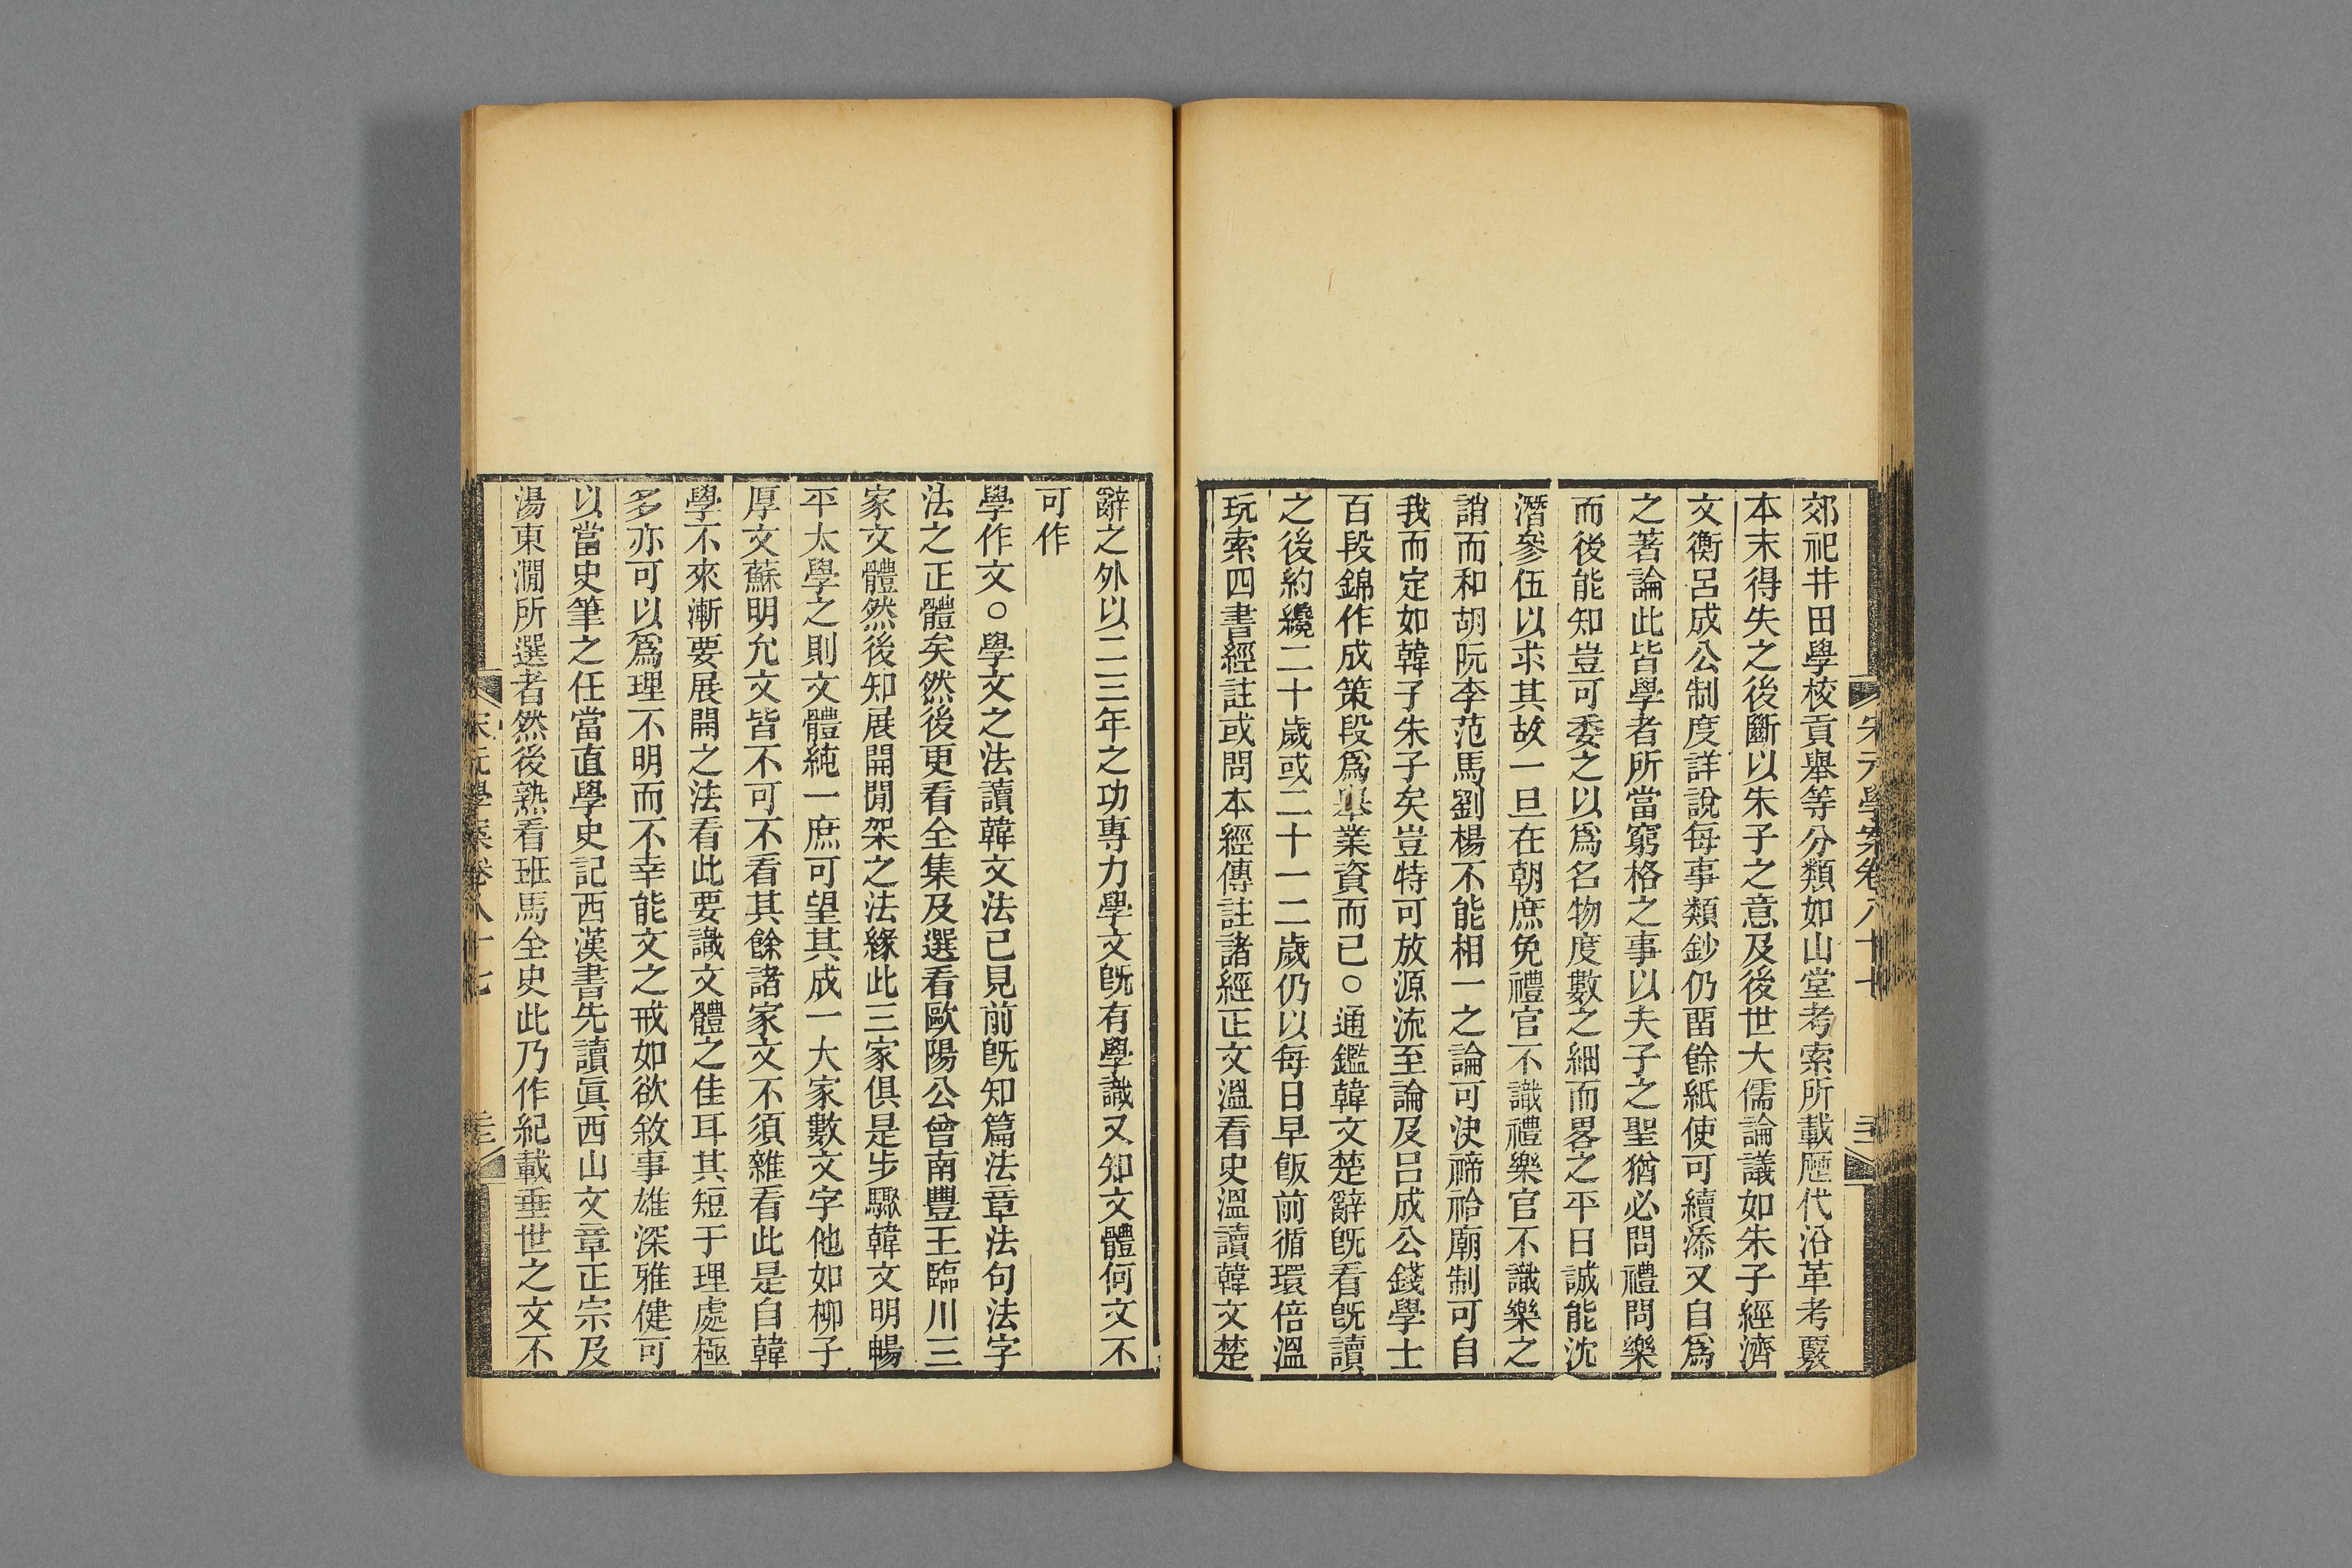 郊祀井田學校貢舉等分類如山堂考索所載歷代沿革考覈
本末得失之後斷以朱子之意及後世大儒論議如朱子經濟
文衡呂成公制度詳說每事類鈔仍畱餘紙使可續添又自爲
之著論此皆學者所當窮格之事以夫子之聖猶必問禮問樂
而後能知豈可委之以爲名物度數之細而畧之平日誠能沈
潛參伍以求其故一旦在朝庶免禮官不識禮樂官不識樂之
誚而和胡阮李范馬劉楊不能相一之論可決禘祫廟制可自
我而定如韓子朱子矣豈特可放源流至論及呂成公錢學士
百段錦作成策段爲舉業資而已○通鑑韓文楚辭旣看旣讀
之後約纔二十歲或二十一二歲仍以每日早飯前循環倍溫
玩索四書經註或問本經傳註諸經正文溫看史溫讀韓文楚
辭之外以二三年之功專力學文旣有學識又知文體何文不
可作
學作文○學文之法讀韓文法已見前旣知篇法章法句法字
法之正體矣然後更看全集及選看歐陽公曾南豐王臨川三
家文體然後知展開閒架之法緣此三家俱是步驟韓文明暢
平太學之則文體純一庶可望其成一大家數文字他如柳子
厚文蘇明允文皆不可不看其餘諸家文不須雜看此是自韓
學不來漸要展開之法看此要識文體之佳耳其短于理處極
多亦可以爲理不明而不幸能文之戒如欲敘事雄深雅健可
以當史筆之任當直學史記西漢書先讀眞西山文章正宗及
湯東澗所選者然後熟看班馬全史此乃作紀載垂世之文不
宋元學案卷八十七